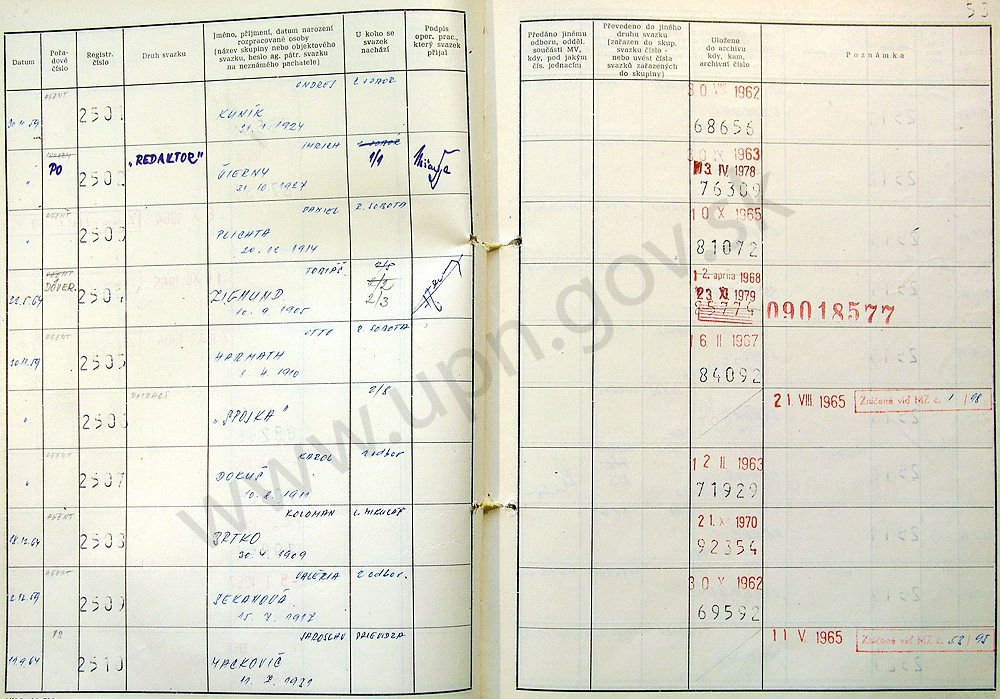 53
Datum
Pořa-
dové
číslo
Registr.
číslo
Druh svazku
Jméno, příjmení, datum narození
rozpracované osoby
(název skupiny nebo objektového
svazku, heslo ag. pátr. svazku
na neznámého pachatele)
U koho se
svazek
nachází
Podpis
oper. prac.,
který svazek
přijal
Předáno jinému
odboru, odděl.
součásti MV,
kdy, pod jakým
čís. jednacím
Převedeno do jiného
druhu svazku
(zařazen do skup.
svazku číslo -
nebo uvést čísla
svazků zařazených
do skupiny)
Uloženo
do archivu
kdy, kam,
archivní číslo
Poznámka
AGENT
2501
ONDREJ
KUNÍK
31. 1. 1924
2. ODBOR
30 VIII 1962
68656
"
PO
2502
„REDAKTOR"
IMRICH
ČIERNY
31. 10. 1927
1/1
1963
03. IV 1978
76309
"
AGENT
2503
DANIEL
PLICHTA
1914
R. SOBOTA
10 X 1965
81072
DÔVER.
2504
TOBIÁŠ
ZIGMUND
10. 9. 1905
2/2
2/3
12. apríla 1968
23 XI 1979
85774
09018577
AGENT
2505
OTTO
HARMATH
4. 1910
R. SOBOTA
16 II 1967
84092
"
2506
„SPOJKA"
2/8
21. VIII 1965
Zničené viď MZ č. 1/98
"
AGENT
2507
KAROL
DOKUŠ
10. 8. 1911
2 odbor
12 II. 1963
71929
18.12.64
AGENT
2508
KOLOMAN
BRTKO
30. 4. 1909
L. MIKULÁŠ
21. X 1970
92354
2.12.59
AGENT
2509
VALÉRIA
SEKANOVÁ
15. 7. 1927
2 odbor.
30 X 1962
69592
2510
JAROSLAV
HACKOVIČ
11. 7. 1931
PRIEVIDZA
11 V. 1965
Zničené viď MZ č. 52/95
www.upn.gov.sk